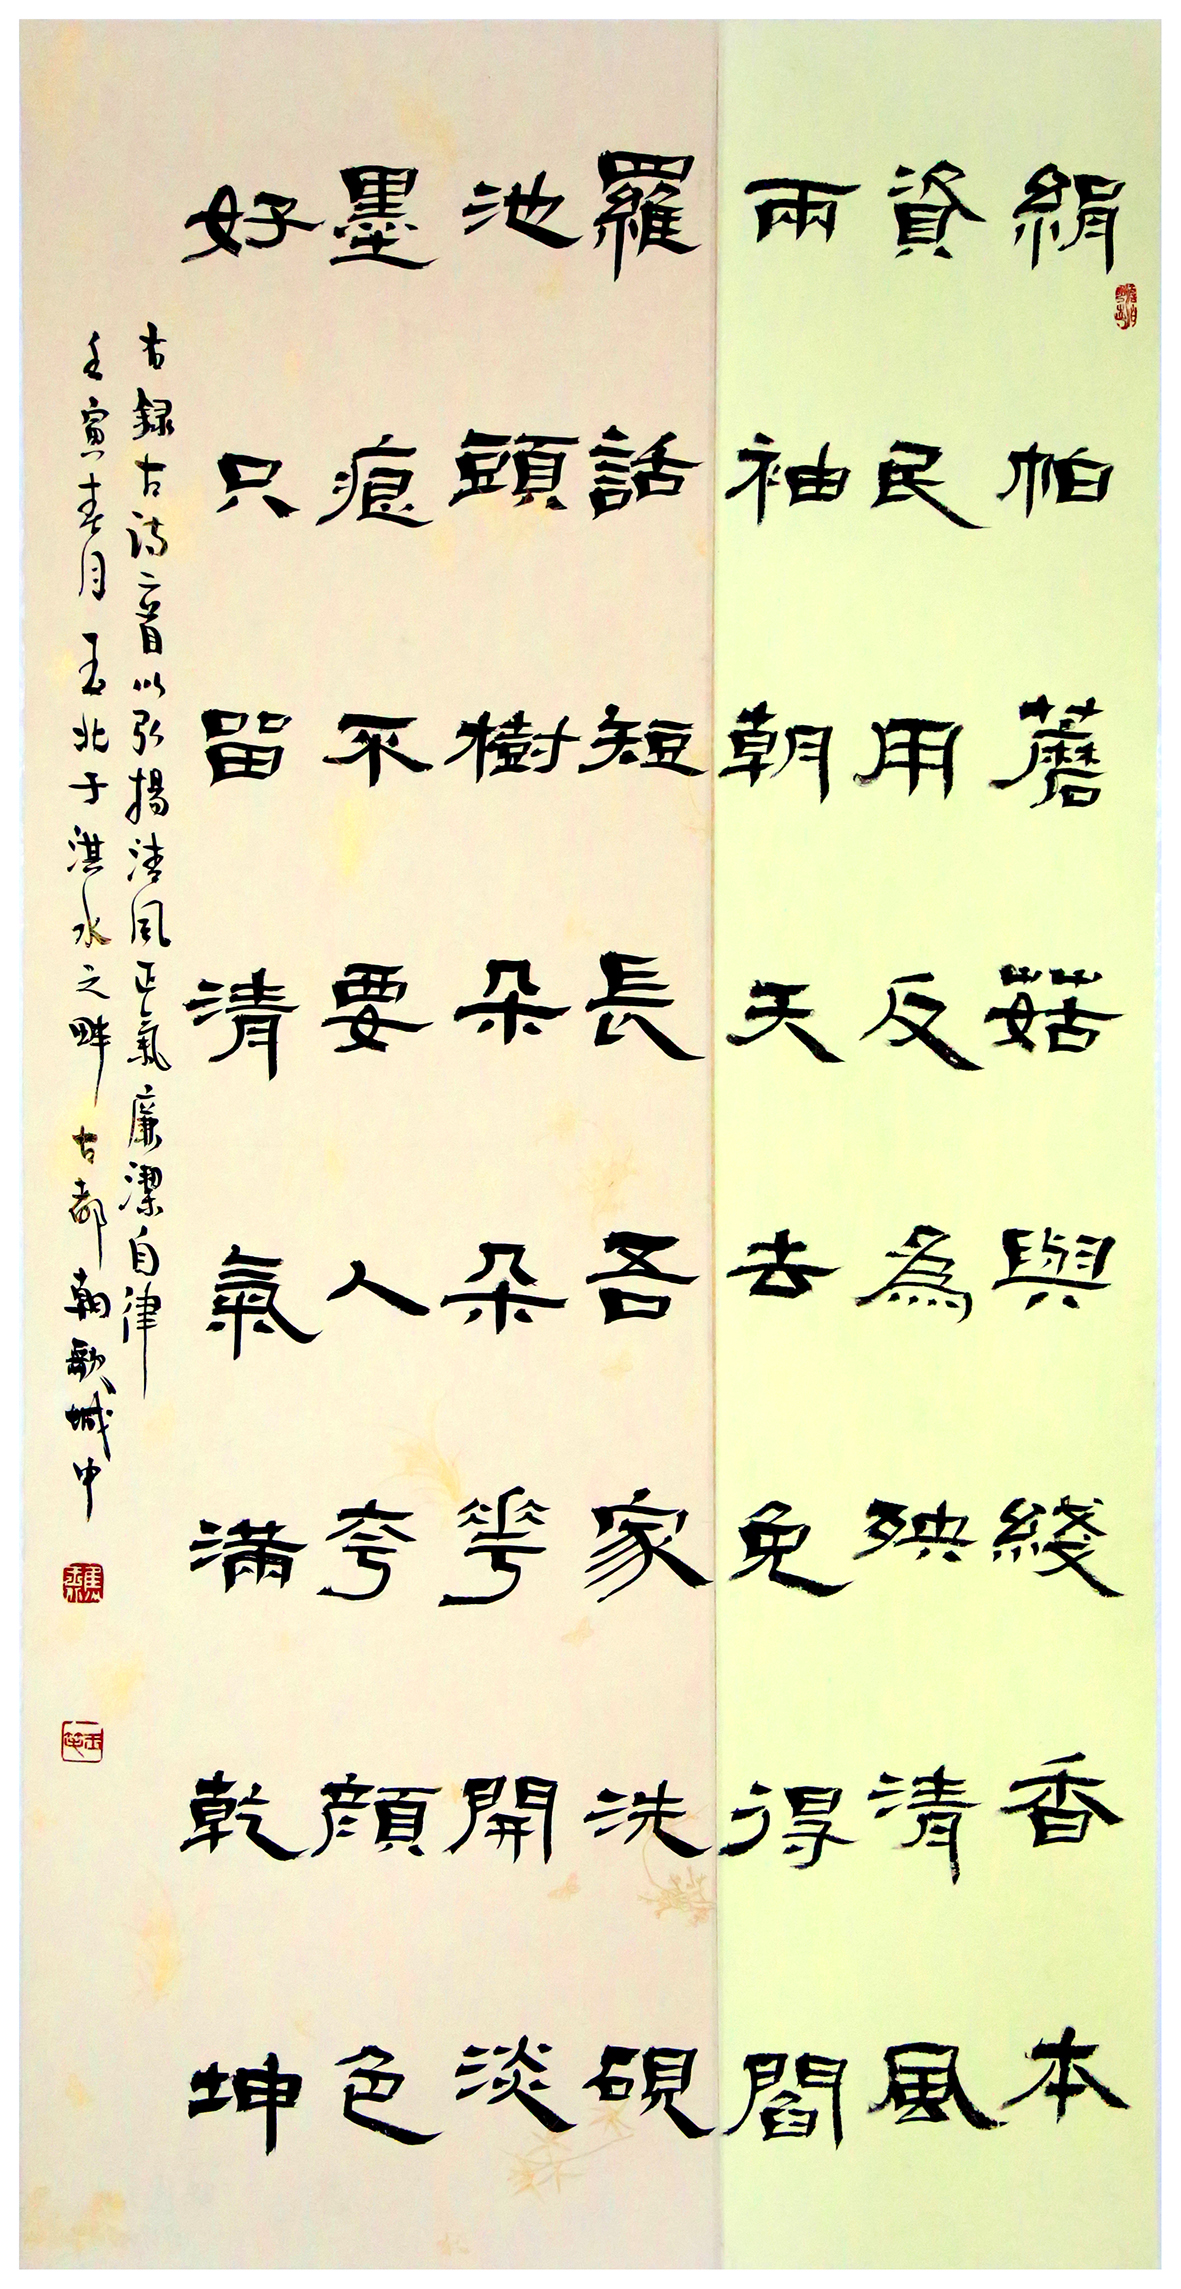 絹帕蘑菇與綫香本
資民用反為殃清風
兩袖朝天去免得閻
羅話短長吾家洗硯
池頭樹朵朵華開淡
墨痕不要人夸顏色
好只留清氣滿乾坤
右錄古詩二首以弘揚清風正氣廉潔自律
壬寅春月北于淇水之畔古都朝歌城中